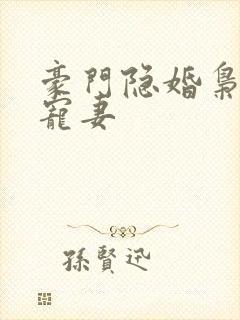 豪門隐婚梟
寵妻
孫賢迅